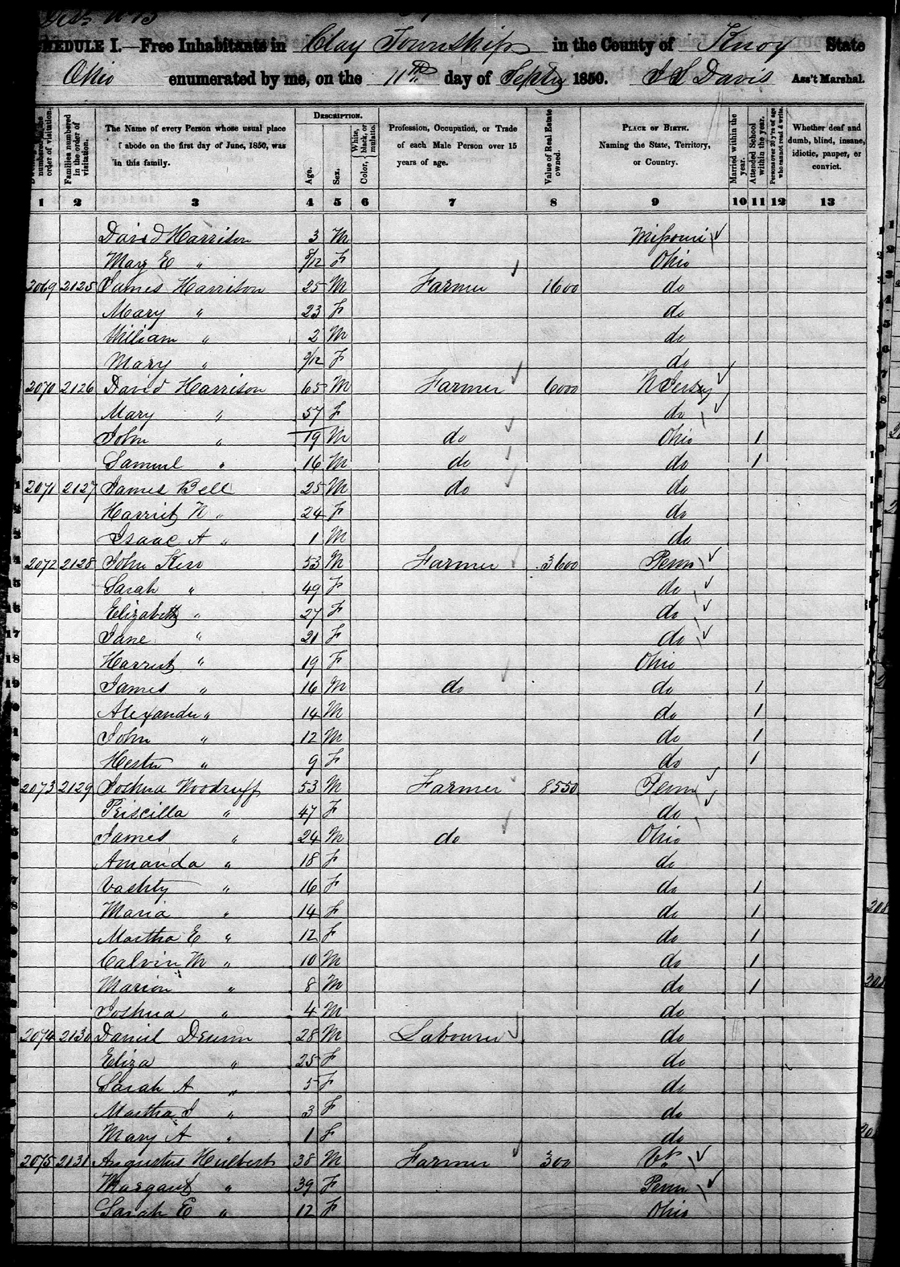 SCHEDULE I.—Free Inhabitants in Clay Township in the County of Knox State
Ohio enumerated by me, on the 11th day of Septr 1850. J S Davis Ass't Marshal.
DESCRIPTION.
numbered in the order of visitation. Families numbered in the order of visitation. The Name of every Person whose usual place of abode on the first day of June, 1850, was in this family. Age. Sex. Color, White, black, or mulatto. Profession, Occupation, or Trade of each Male Person over 15 years of age. Value of Real Estate owned. PLACE OF BIRTH. Naming the State, Territory, or Country. Married within the year. Attended School within the year. Persons over 20 y'rs of age who cannot read & write. Whether deaf and dumb, blind, insane, idiotic, pauper, or convict.
1 2 3 4 5 6 7 8 9 10 11 12 13
David Harrison 3 M Missouri
Mary E " 5/12 F Ohio
2069 2125 James Harrison 25 M Farmer 1600 do
Mary " 23 F do
William " 2 M do
Mary " 9/12 F do
2070 2126 David Harrison 65 M Farmer 6000 N Jersey
Mary " 57 F do
John " 19 M do Ohio 1
Samuel " 16 M do do 1
2071 2127 James Bell 25 M do do
Harriet N " 24 F do
Isaac A " 1 M do
2072 2128 John Kerr 53 M Farmer 3600 Penn
Sarah " 49 F do
Elizabeth " 27 F do
Jane " 21 F do
Harriet " 19 F Ohio
James " 16 M do do 1
Alexander " 14 M do 1
John " 12 M do 1
Hester " 9 F do 1
2073 2129 Joshua Woodruff 53 M Farmer 8550 Penn
Priscilla " 47 F do
James " 24 M do Ohio
Amanda " 18 F do
Vashty " 16 F do 1
Maria " 14 F do 1
Martha E " 12 F do 1
Calvin M " 10 M do 1
Marion " 8 M do 1
Joshua " 4 M do
2074 2130 Daniel 28 M Labourer do
Eliza " 25 F do
Sarah A " 5 F do
Martha J " 3 F do
Mary A " 1 F do
2075 2131 Augustus Hulbert 38 M Farmer 300 Vt
Margaret " 39 F Penn
Sarah E " 12 F Ohio